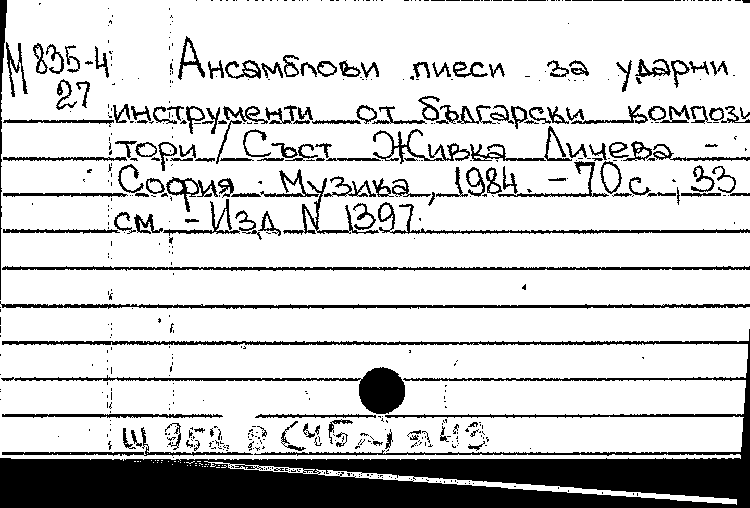 М 835-4
27
Ансамблови пиеси за ударни
инструменти от български компози
тори / Съст Живка Личева -
София : Музика, 1984. - 70 с ; 33
см - Изд N 1397.
Щ 952 8 (4Бл) я 43